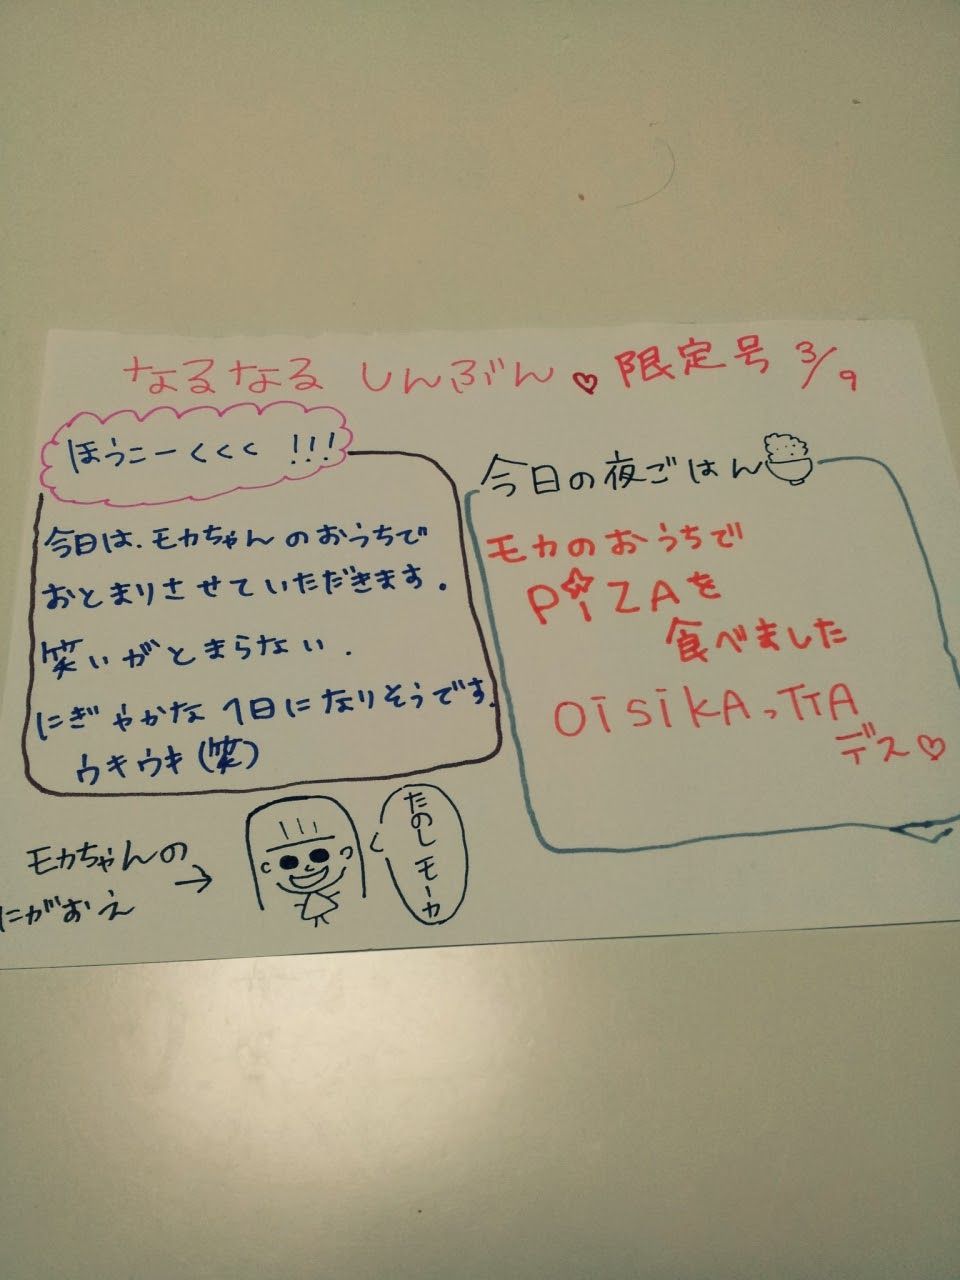 なるなるしんぶん♡限定号 3/9
ほうこーくくく!!!
今日は、モカちゃんのおうちで
おとまりさせていただきます.
笑いがとまらない.
にぎやかな1日になりそうです.
ウキウキ(笑)
今日の夜ごはん
モカのおうちで
PiZAを
食べました
OISIKA、TTA
デス♡
モカちゃんの
にがおえ
→
たのしモーカ